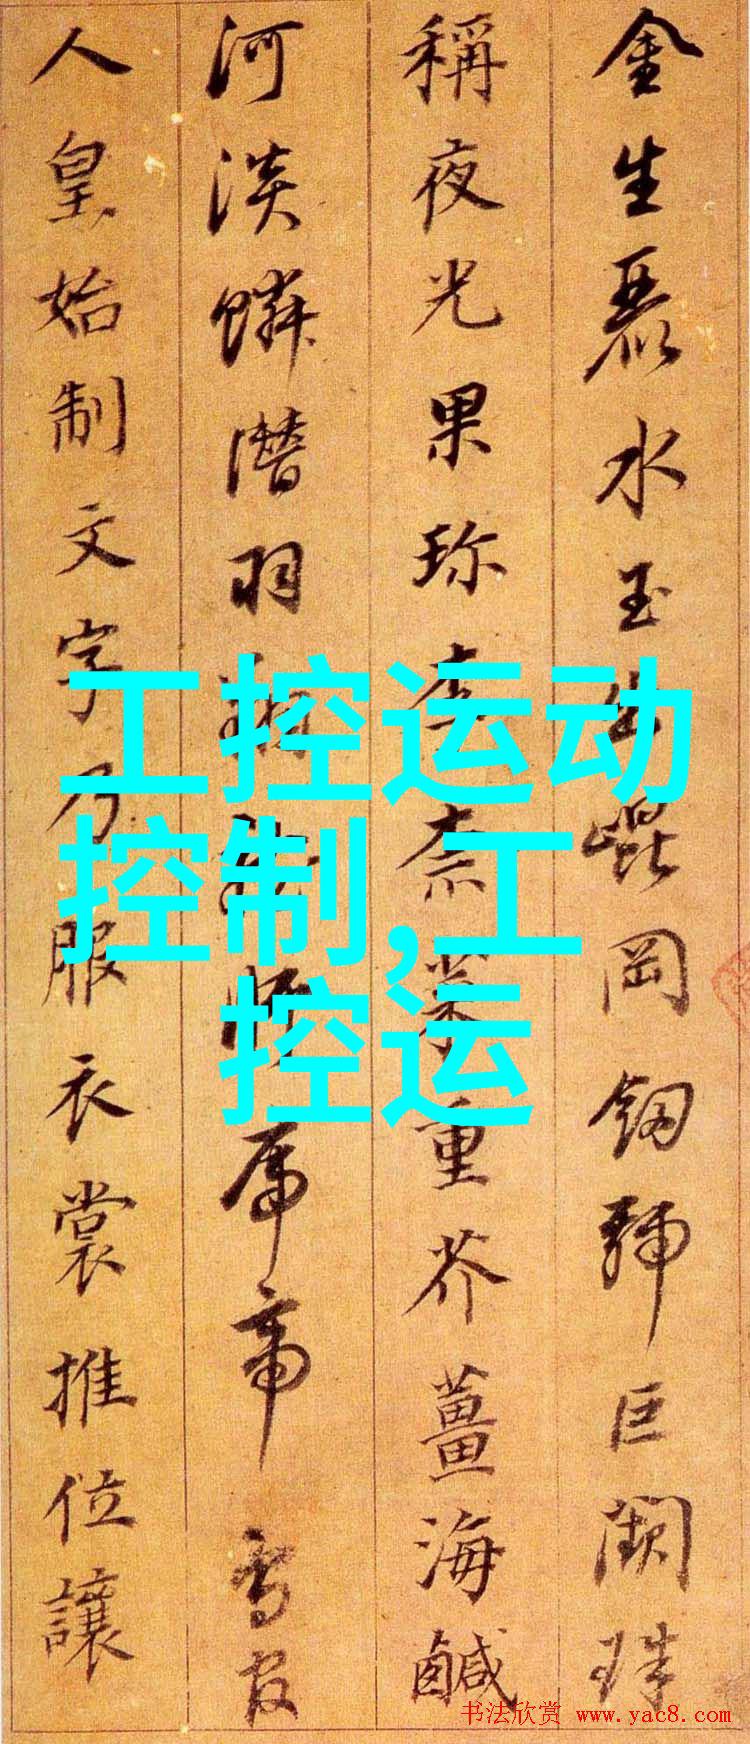 金生麗水玉出崐岡釼號巨闕珠
稱夜光果珍李柰菜重芥薑海鹹
河淡鱗潛羽翔龍師帝鳥官
人皇始制文字乃服衣裳推位讓
工控运动
控制,工
控运
书法欣赏 www.yac8.com